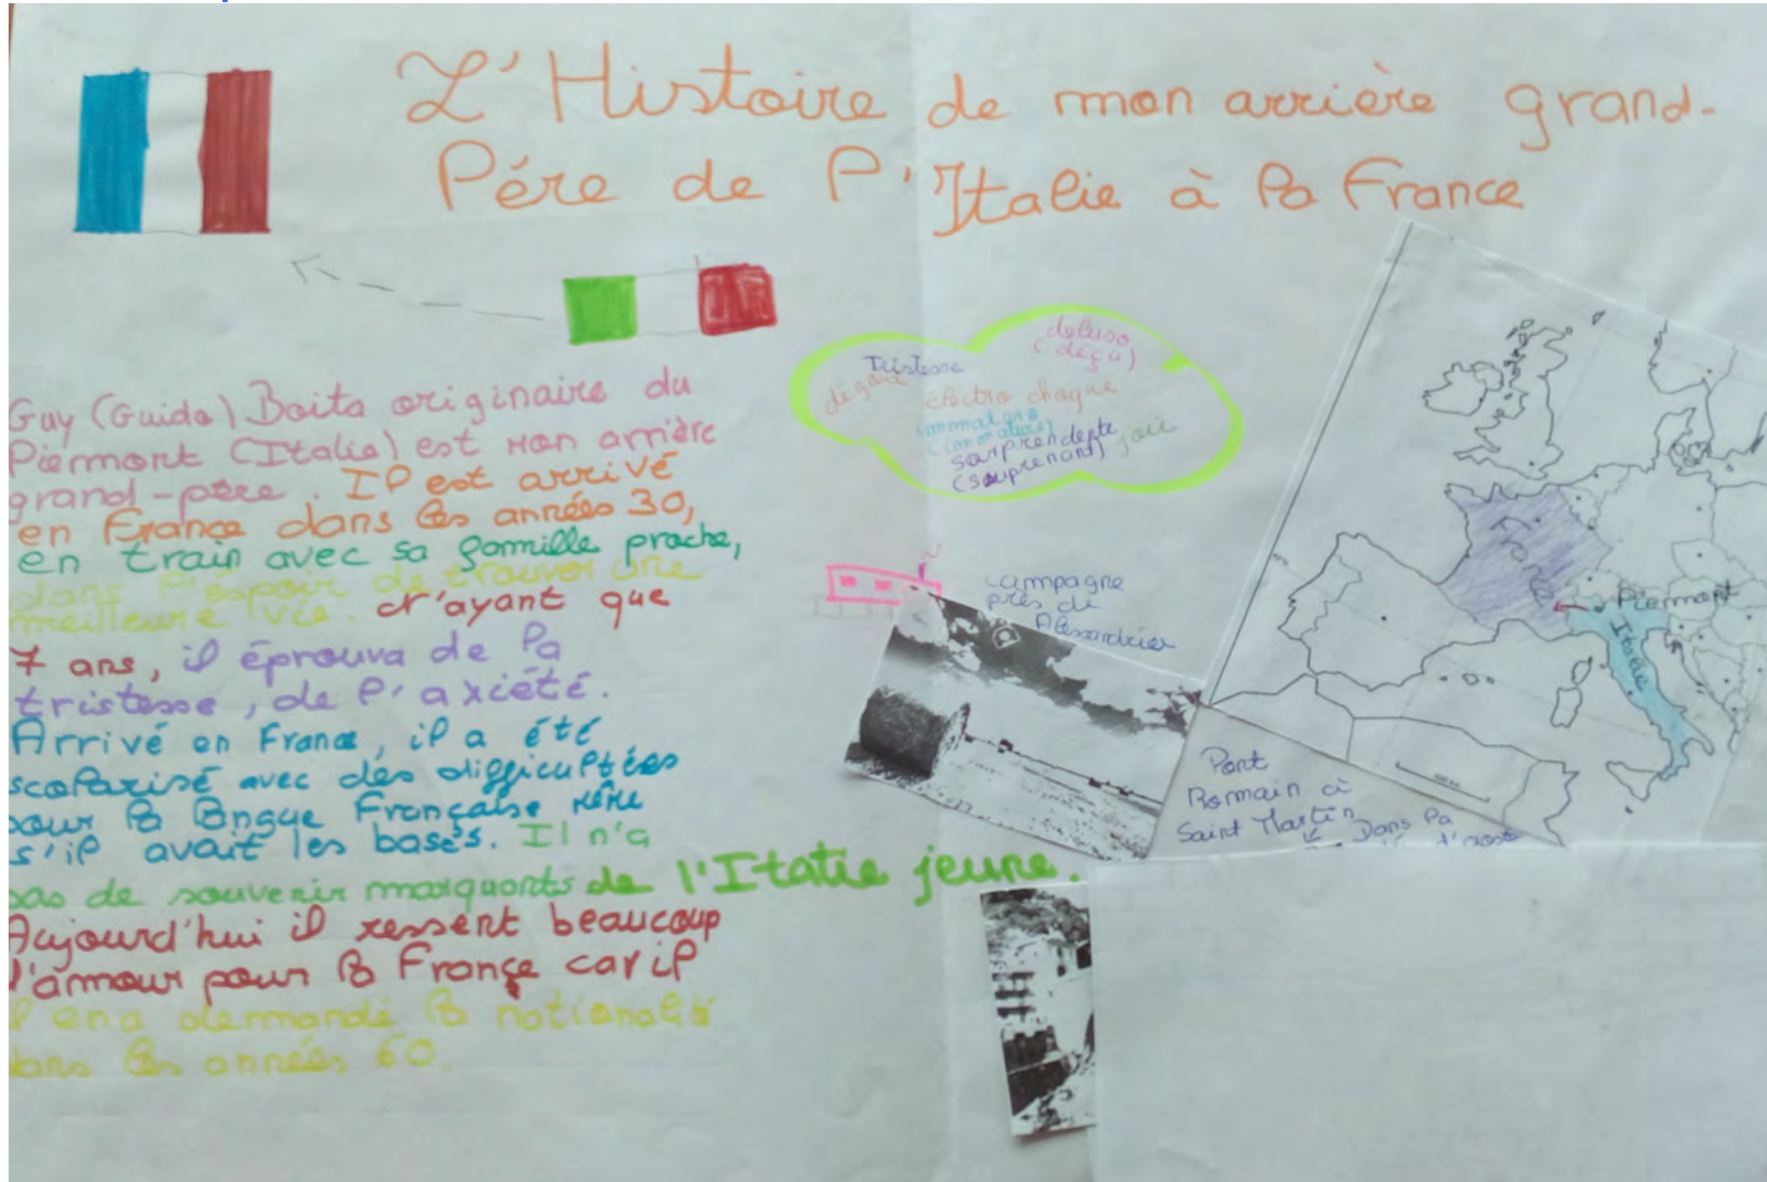 L'Histoire de mon arrière grand-
Pére de l'Italie à la France
Guy (Guido) Boito originaire du
Piermont (Italie) est mon arrière
grand-père. Il est arrivé
en France dans les années 30,
en train avec sa famille proche,
dans l'espoir de trouver une
meilleure vie. N'ayant que
7 ans, il éprouva de la
tristesse, de l'axiété.
Arrivé en France, il a été
scolarisé avec des difficultées
pour la langue Française même
s'il avait les bases. Il n'a
pas de souvenir marquants de l'Italie jeune.
Aujourd'hui il ressent beaucoup
d'amour pour la France car il
l en a demandé la nationalité
dans les années 60.
deluso
(déçu)
Tristesse
dégout
électro choque
sorprendente
(souprenant)
joie
campagne
près de
France
Piermont
Italie
Pont
Romain à
Saint Martin
Dans la